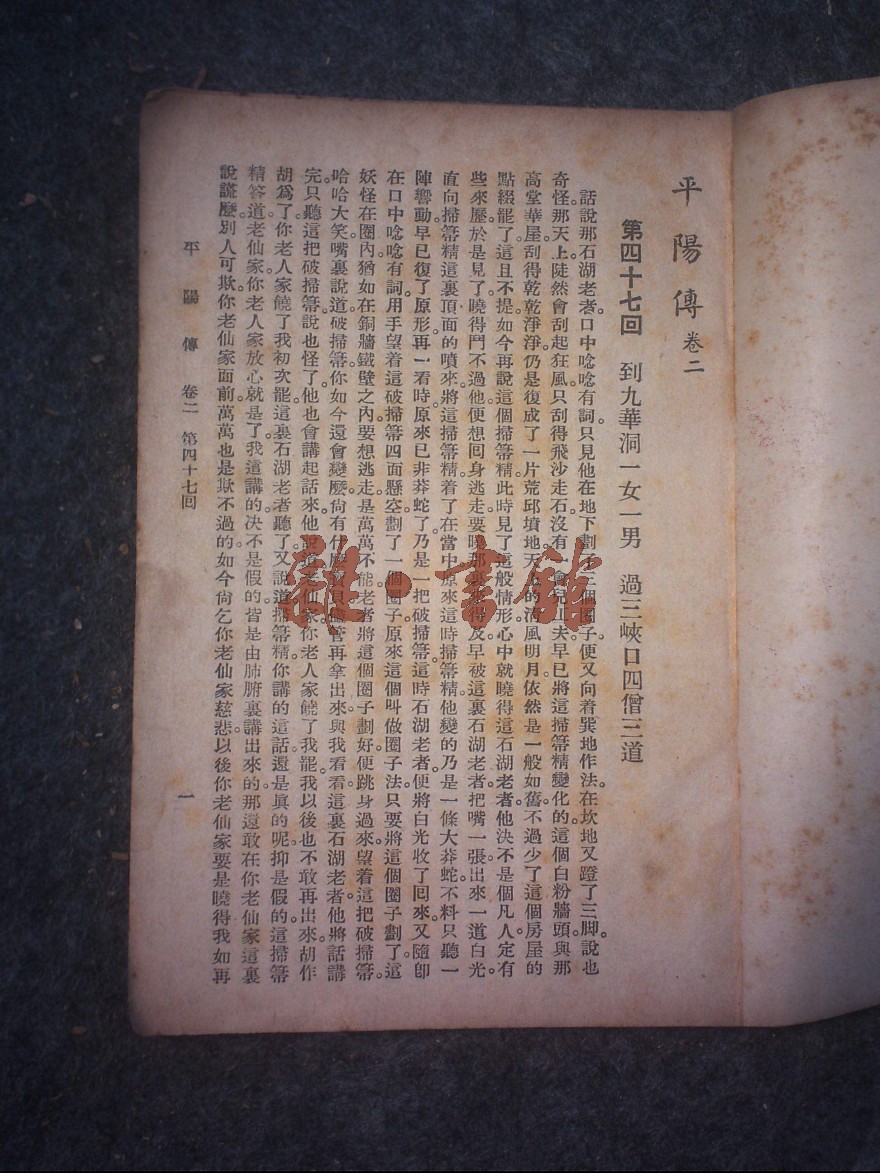 平陽傳 卷二
第四十七回 到九華洞一女一男 過三峽口四僧三道
話說那石湖老者。口中唸唸有詞。只見他在地下劃了三個圈子。便又向着巽地作法。在坎地又蹬了三脚。說也
奇怪。那天上陡然會刮起狂風。只刮得飛沙走石。沒有一會兒工夫。早已將這掃箒精變化的這個白粉牆頭。與那
高堂華屋。刮得乾乾淨淨。仍是復成了一片荒邱墳地。天上的清風明月。依然是一般如舊。不過少了這個房屋的
點綴罷了。這且不提。如今再說這個掃箒精。此時見了這般情形。心中就曉得這石湖老者。他決不是個凡人。定有
些來歷。於是見了。曉得鬥不過他。便想回身逃走。要得及。早被這裏石湖老者。把嘴一張。出來一道白光。
直向掃箒精這裏頂面的噴來。將這掃箒精着了在當中。原來這時掃箒精。他變的乃是一條大莽蛇。不料只聽一
陣響動。早已復了原形。再一看時。原來已非莽蛇了。乃是一把破掃箒。這時石湖老者。便將白光收了囘來。又隨卽
在口中唸唸有詞。用手望着這破掃箒四面懸空劃了一個圈子。原來這個叫做圈子法。只要將這個圈子劃了。這
妖怪在圈內。猶如在銅牆鐵壁之內。要想逃走。是萬萬不能。老者將這個圈子劃好。便跳身過來。望着這把破掃箒。
哈哈大笑。嘴裏說道。破掃箒。你如今還會變麼。尙有什麼寶貝。儘管再拿出來。與我看看。這裏石湖老者。他將話講
完。只聽這把破掃箒。說也怪了。他也會講起話來。他說道。老仙家。你老人家饒了我罷。我以後也不敢再出來。胡作
胡爲了。你老人家饒了我初次罷。這裏石湖老者聽了。又說道。掃箒精。你講的這話。還是眞的呢。抑是假的。這掃箒
精答道。老仙家。你老人家放心就是了。我這講的。決不是假的。皆是由肺腑裏講出來的。那還敢在你老仙家這裏
說謊麼。別人可欺。你老仙家面前。萬萬也是欺不過的。如今尙乞你老仙家慈悲。以後你老仙家要是曉得我如再
平陽傳 卷二 第四十七回 一
雜·書館